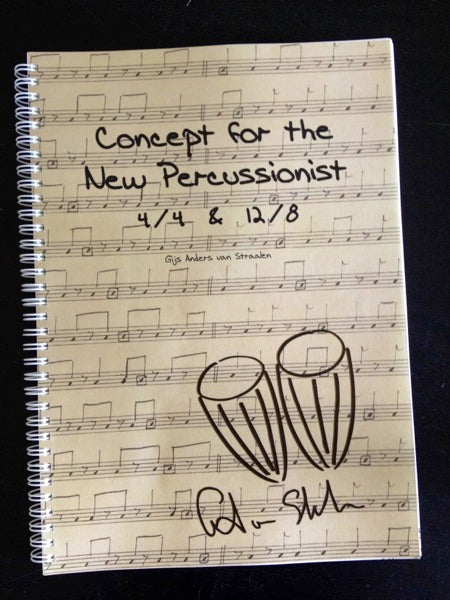 Concept for the
New Percussionist
4/4 & 12/8
Gijs Anders van Straalen